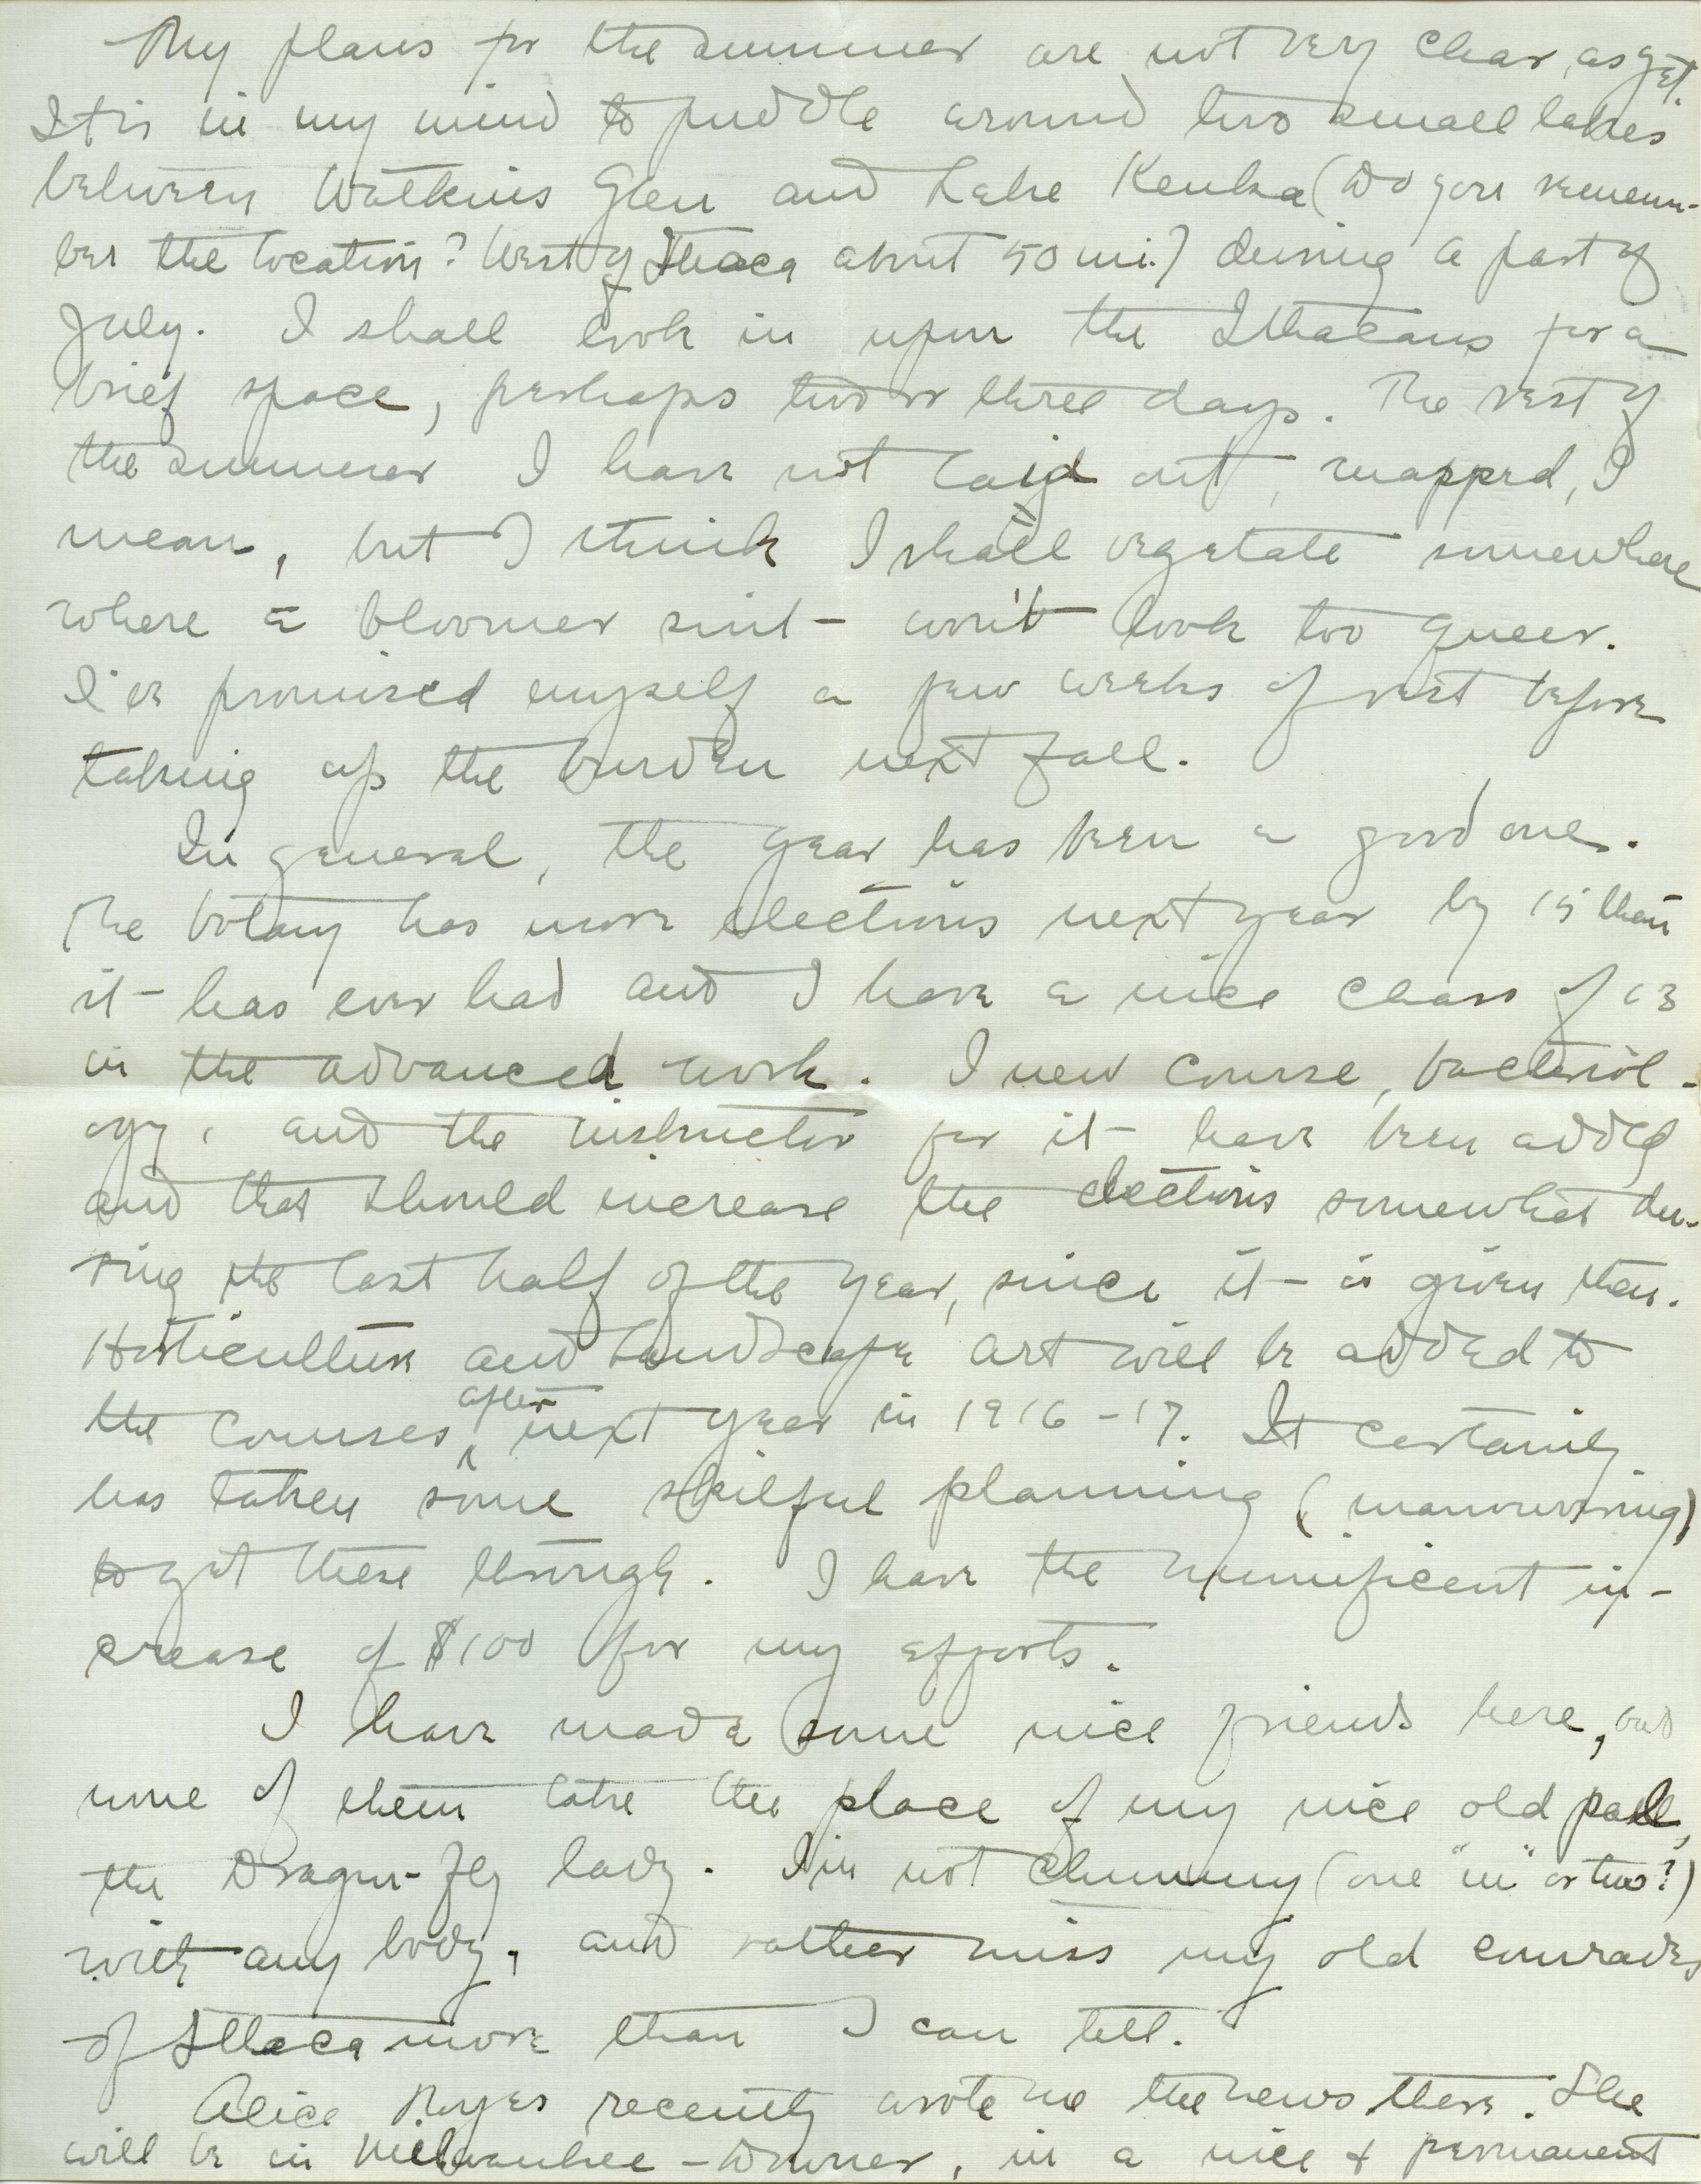 My plans for the summer are not very clear, as yet.
It is in my mind to puddle around two small lakes
between Watkins Glen and Lake Keuka (Do you remem-
ber the location? West of Ithaca about 50 mi.) during a part of
July. I shall look in upon the Ithacans for a
brief space, perhaps two or three days. The rest of
the summer I have not laid out, mapped, I
mean, but I think I shall vegetate somewhere
where a bloomer suit won't look too queer.
I've promised myself a few weeks of rest before
taking up the burden next fall.
In general, the year has been a good one.
The botany has more elections next year by 15 than
it has ever had and I have a nice class of 13
in the advanced work. 1 new course, bacteriol-
ogy, and the instructor for it have been added
and that should increase the elections somewhat du-
ring the last half of the year, since it is given then.
Horticulture and Landscape art will be added to
the courses after next year in 1916-17. It certainly
has taken some skilful planning (manouvering)
to get these through. I have the munificent in-
crease of $100 for my efforts.
I have made some nice friends here, but
none of them take the place of my nice old pal,
the Dragon-fly lady. I'm not chummy (one "m" or two?)
with any body, and rather miss my old comrades
of Ithaca more than I can tell.
Alice Noyes recently wrote me the news there. She
will be in Milwaukee-Downer, in a nice & permanent